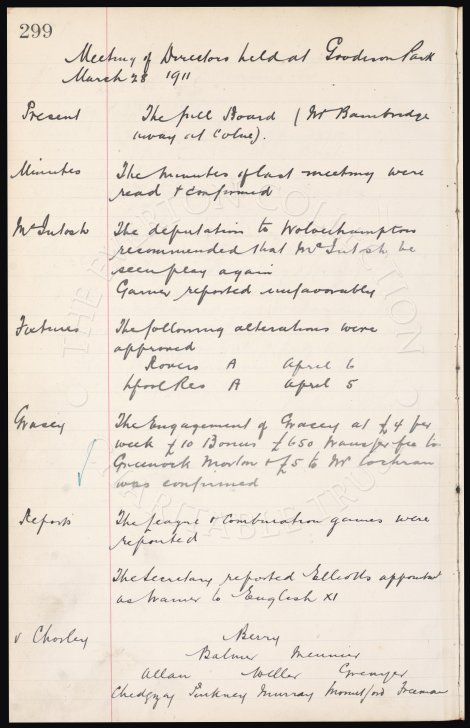 299
Meeting of Directors held at Goodison Park
March 28 1911
Present The full Board (Mr Bainbridge
away at Colne).
Minutes The minutes of last meeting were
read & confirmed
McIntosh The deputation to Wolverhampton
recommended that McIntosh be
seen play again
Garner reported unfavorably
Fixtures The following alterations were
approved
Rovers A April 6
Lpool Res A April 5
Gracey The Engagement of Gracey at £4 per
week £10 Bonus £650 transfer fee to
Greenock Morton & £5 to Mr Cochran
was confirmed
Reports The League & Combination games were
reported
The Secretary reported Elliotts appointmt
as trainer to English XI
v Chorley Berry
Balmer Meunier
Allan Weller Grenyer
Chedgzoy Pinkney Murray Mountford Freeman
THE EVERTON COLLECTION
CHARITABLE TRUST